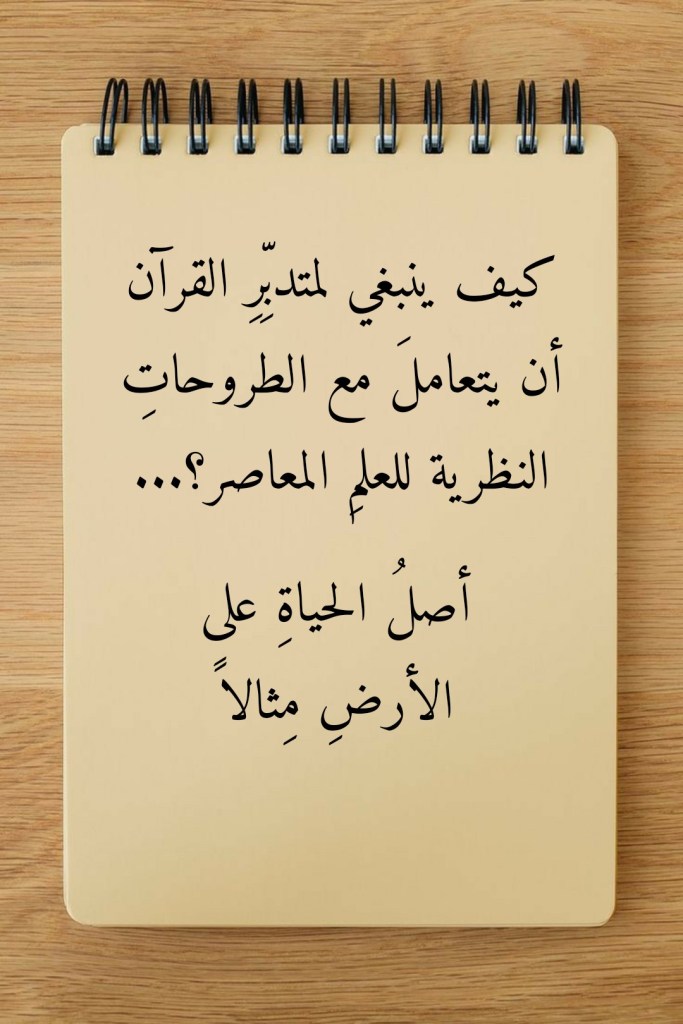 كيف ينبغي لمتدبِّرِ القرآن
أن يتعاملَ مع الطروحاتِ
النظرية للعلمِ المعاصر؟...
أصلُ الحياةِ على
الأرضِ مِثالاً